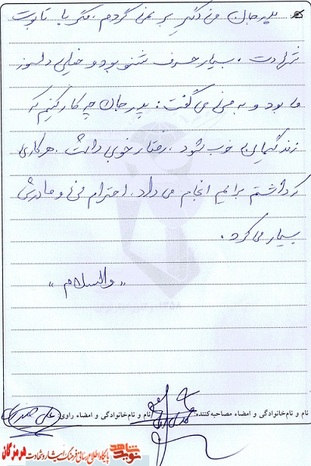 پدر جان من دیگر بر نمی گردم. مگر با تابوت
شهادت. بسیار حرف شنو بود و خیلی دلسوز
ما بود و به من می گفت: پدر جان چه کار کنیم که
زندگیمان خوب شود. رفتار خوبی داشت. هر کاری
که داشتم برایم انجام می داد. احترام من و مادرش
بسیار می کرد.
«والسلام»
نام و نام خانوادگی و امضاء مصاحبه کننده: نام و نام خانوادگی و امضاء راوی:
نوید شاهد پایگاه اطلاع رسانی فرهنگ ایثار و شهادت هرمزگان